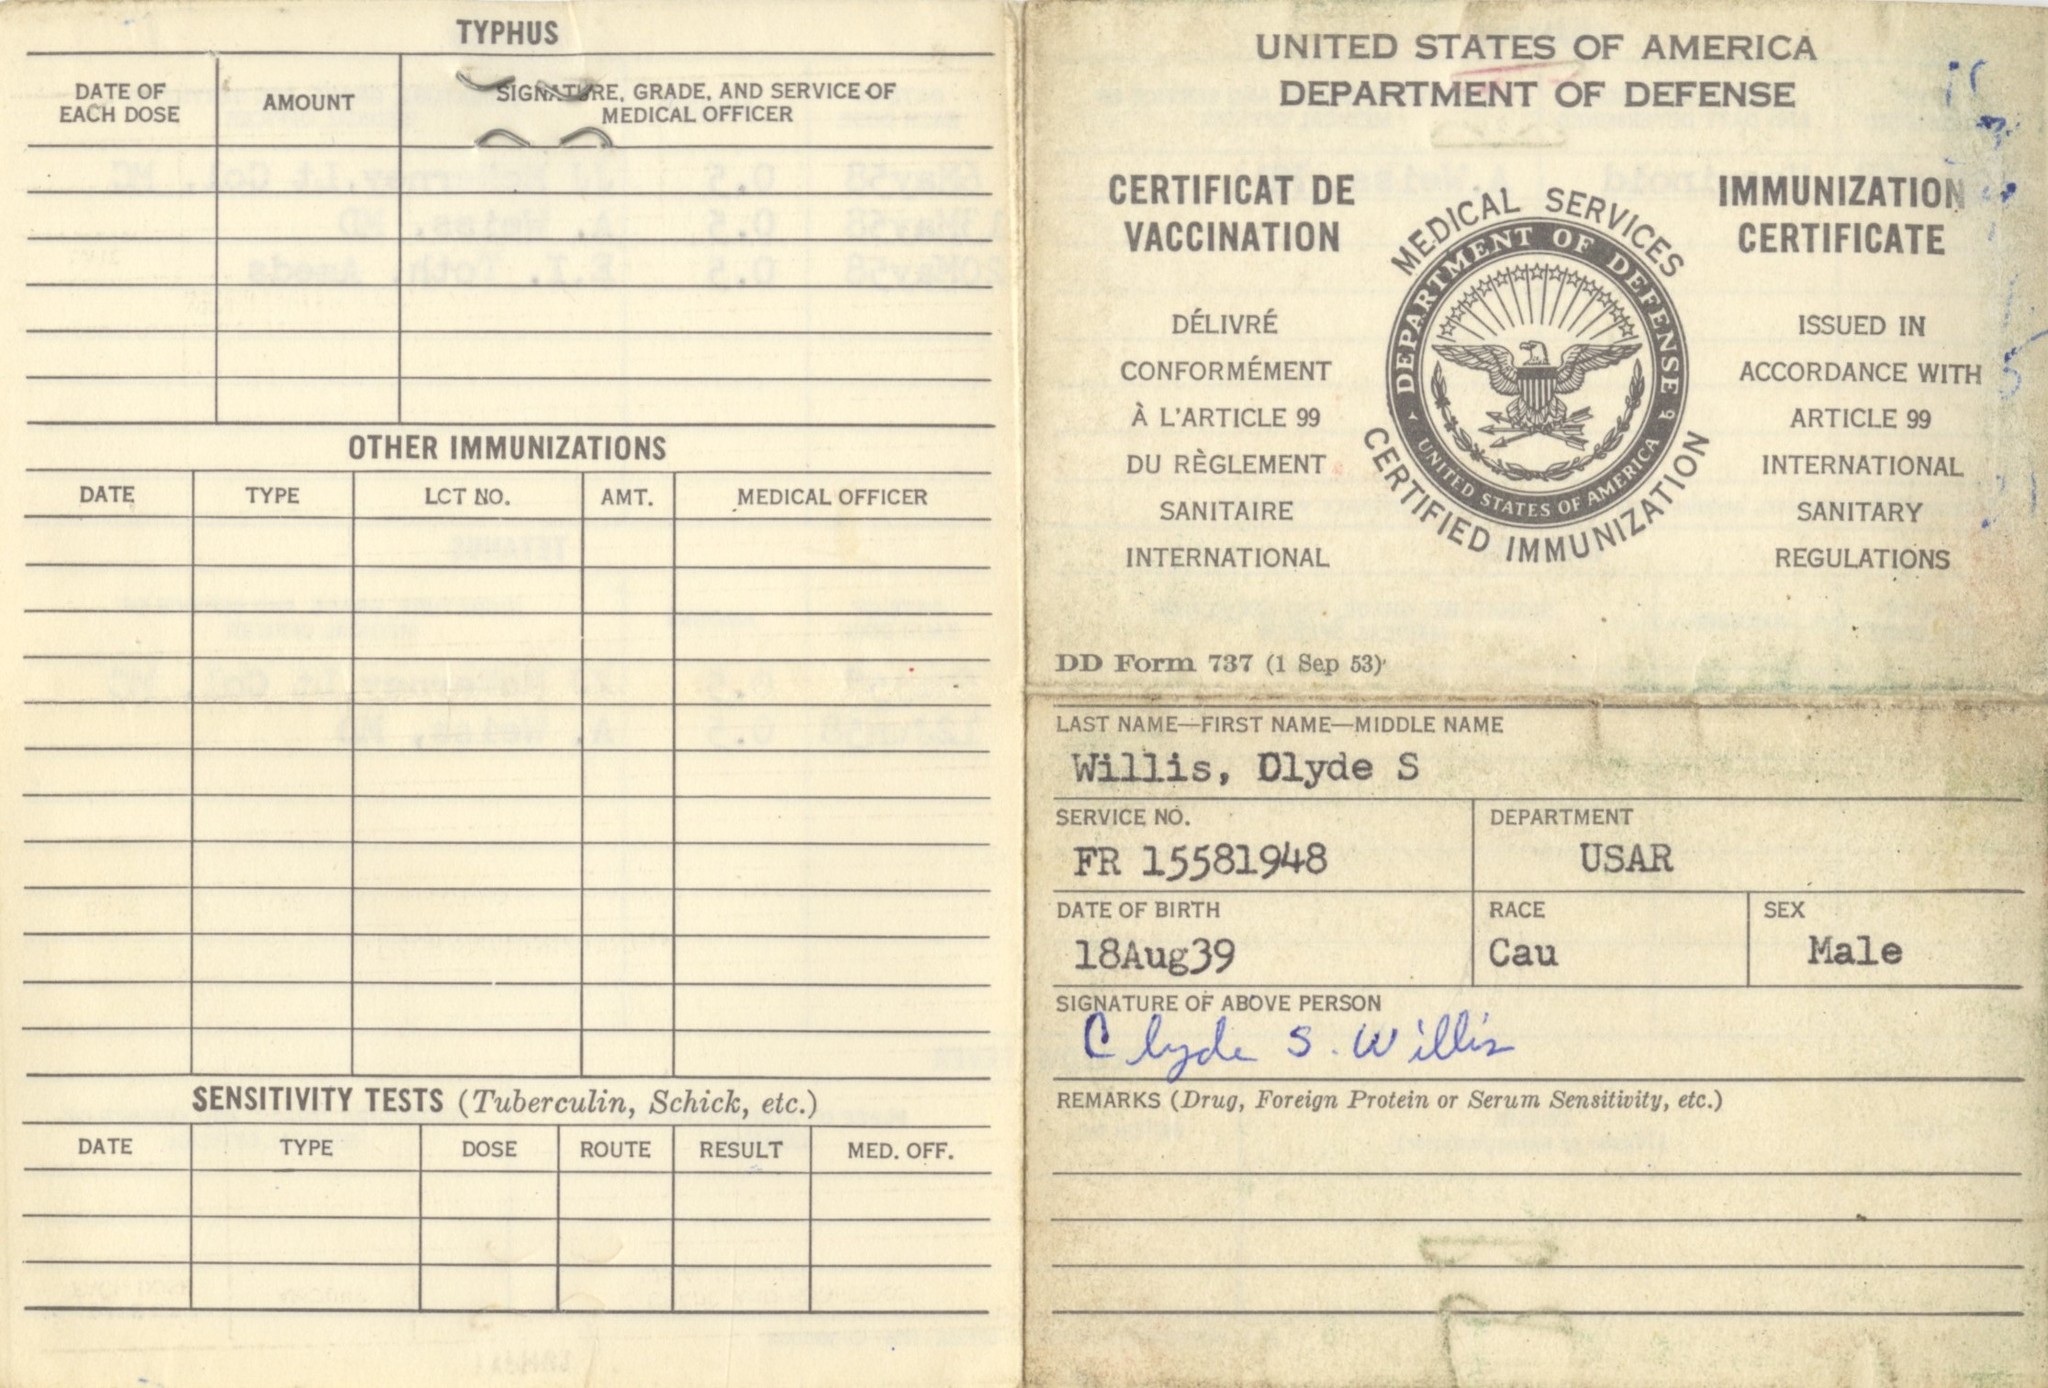 TYPHUS
DATE OF EACH DOSE
AMOUNT
SIGNATURE, GRADE, AND SERVICE OF MEDICAL OFFICER
OTHER IMMUNIZATIONS
DATE TYPE LCT NO. AMT. MEDICAL OFFICER
SENSITIVITY TESTS (Tuberculin, Schick, etc.)
DATE TYPE DOSE ROUTE RESULT MED. OFF.
UNITED STATES OF AMERICA
DEPARTMENT OF DEFENSE
CERTIFICAT DE
VACCINATION
DÉLIVRÉ
CONFORMÉMENT
À L'ARTICLE 99
DU RÈGLEMENT
SANITAIRE
INTERNATIONAL
MEDICAL SERVICES
DEPARTMENT OF DEFENSE
UNITED STATES OF AMERICA
CERTIFIED IMMUNIZATION
IMMUNIZATION
CERTIFICATE
ISSUED IN
ACCORDANCE WITH
ARTICLE 99
INTERNATIONAL
SANITARY
REGULATIONS
DD Form 737 (1 Sep 53)
LAST NAME—FIRST NAME—MIDDLE NAME
Willis, Clyde S
SERVICE NO. DEPARTMENT
FR 15581948 USAR
DATE OF BIRTH RACE SEX
18Aug39 Cau Male
SIGNATURE OF ABOVE PERSON
Clyde S. Willis
REMARKS (Drug, Foreign Protein or Serum Sensitivity, etc.)